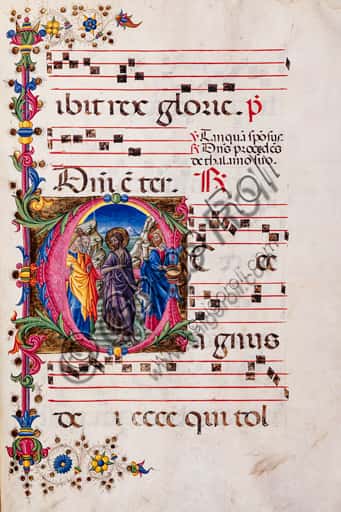 ibit rex glorie. p̄
V Tanquā sponsus.
R Dn̄s procedēs
de thalamo suo.
Dn̄i ē ter. R
E c ce
a gnus
de i ecce qui tol